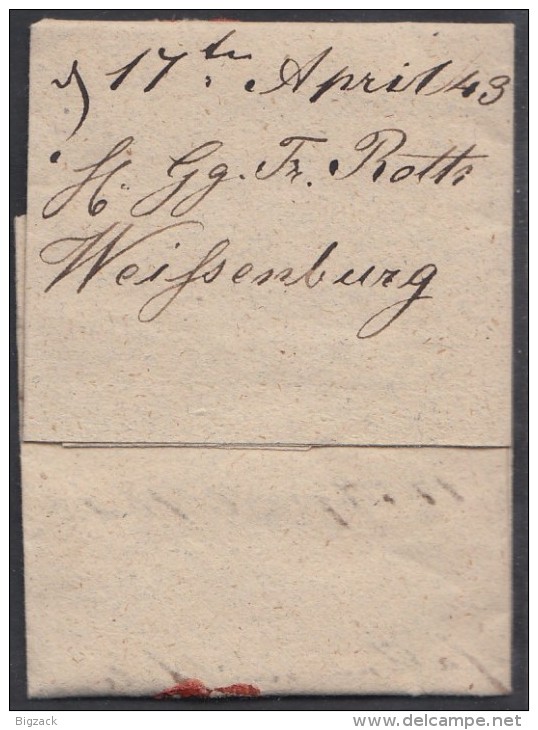 17ten April 43
H. Gg. Fr. Roth
Weißenburg
Bigzack
www.delcampe.net